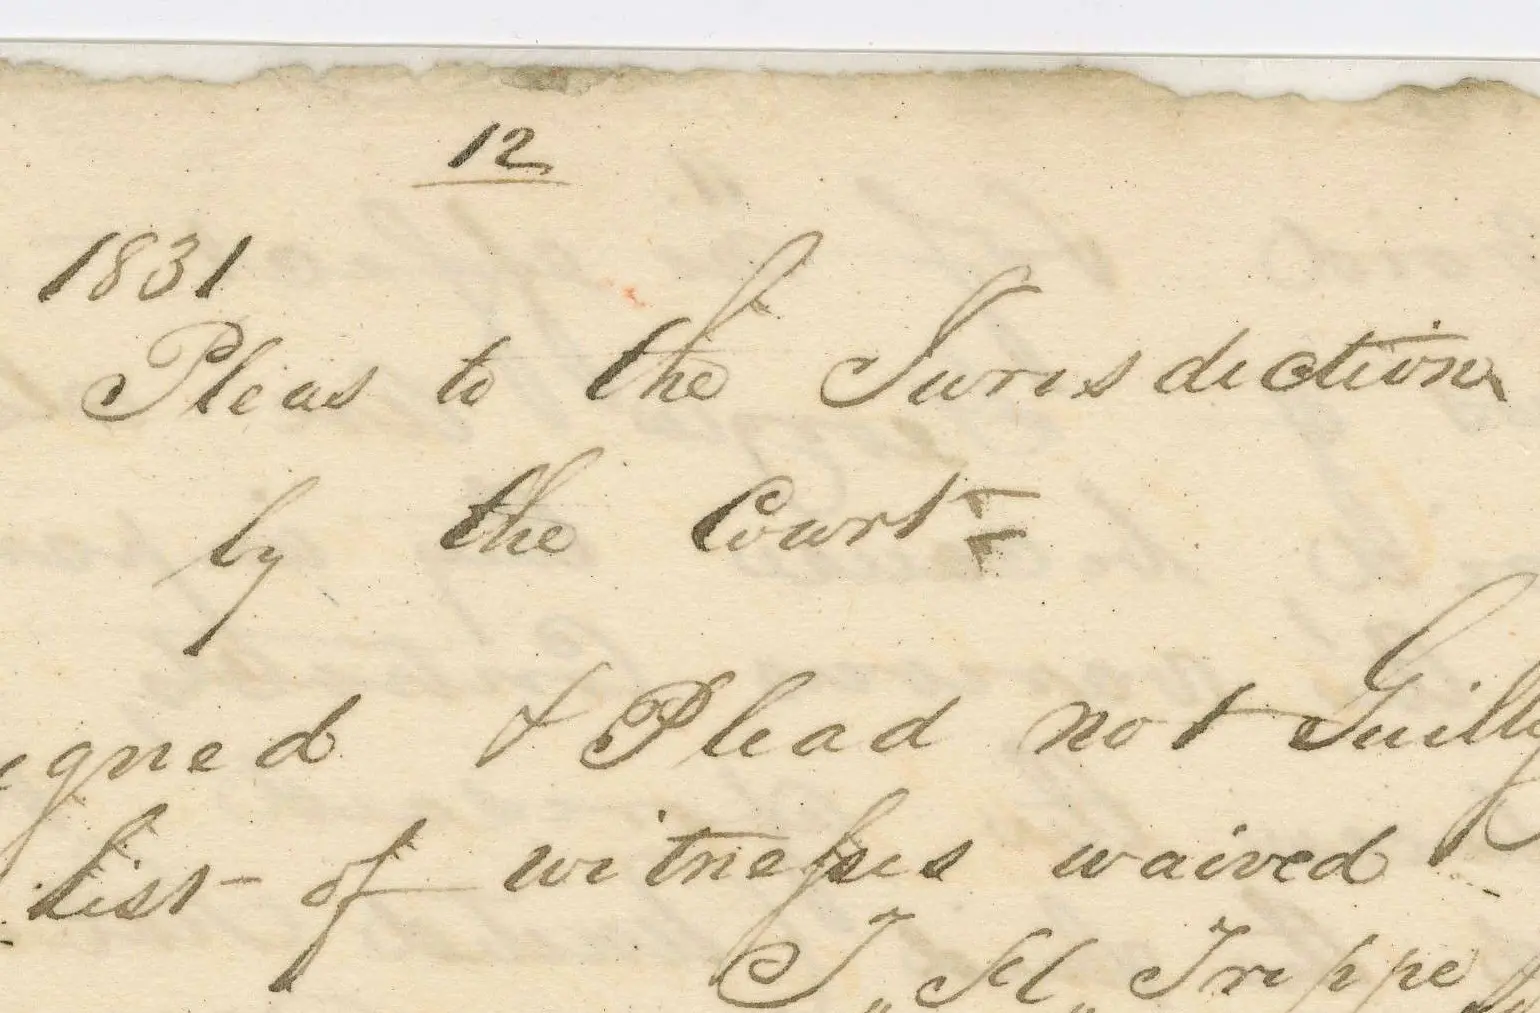 12
1831
Pleas to the Jurisdiction
by the Court
igned & Plead not Guilty
List of witnesses waived
T,, H,, Trippe